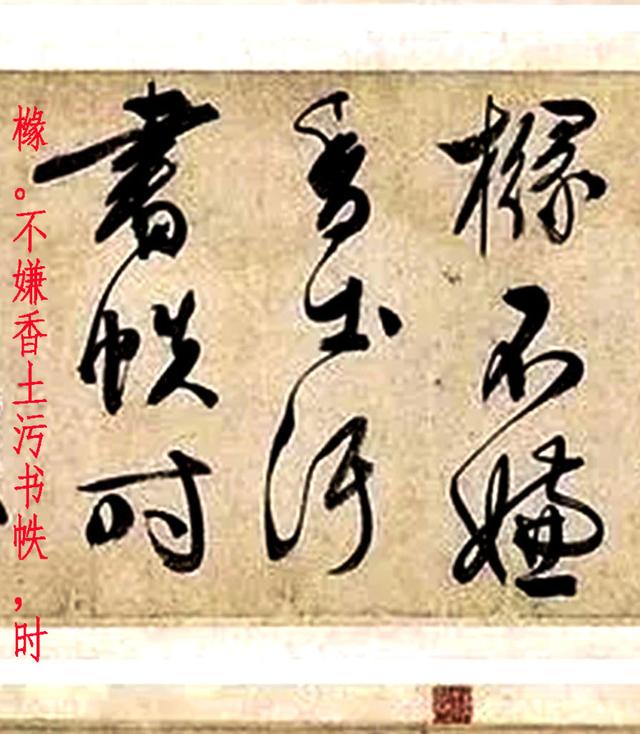 橼不嫌
香土污
書帙时
橼。不嫌香土污书帙,时